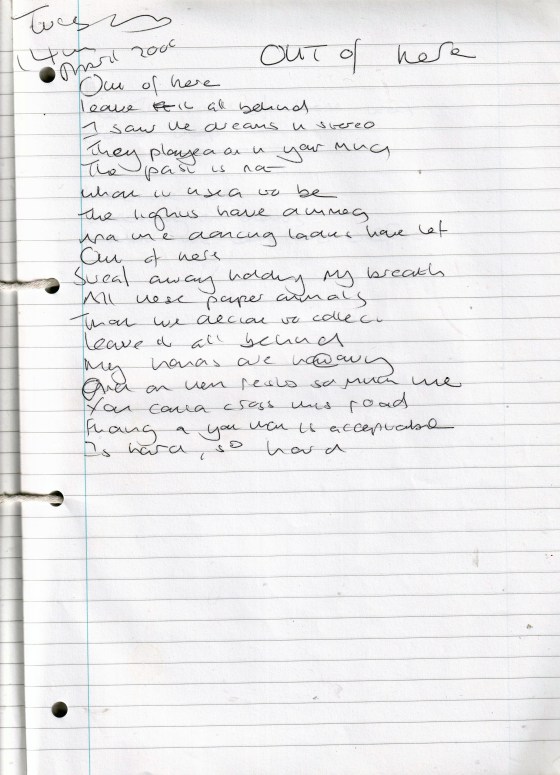 Tues
14th April 200
OUT of here
Out of here
leave it all behind
I saw the dreams in stereo
They played on in your
The past is not
what it used to be
the lights have dimmed
and the dancing ladies have left
Out of here
Sweat away holding my breath
All these paper animals
That we decide to collect
leave it all behind
My hands are
And on rests so much
You could cross this road
Finding a you is acceptable
Is hard, so hard